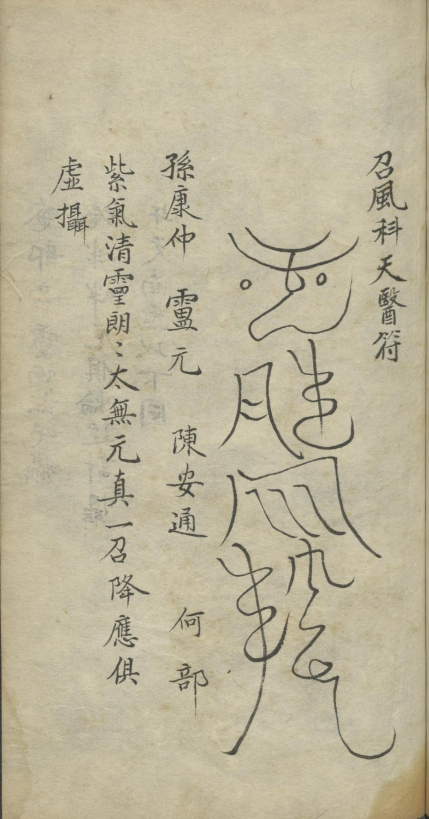 召風科天醫符
孫康仲 靈元 陳安通 何部
紫氣清靈朗〻太無元真一召降應俱
虛攝